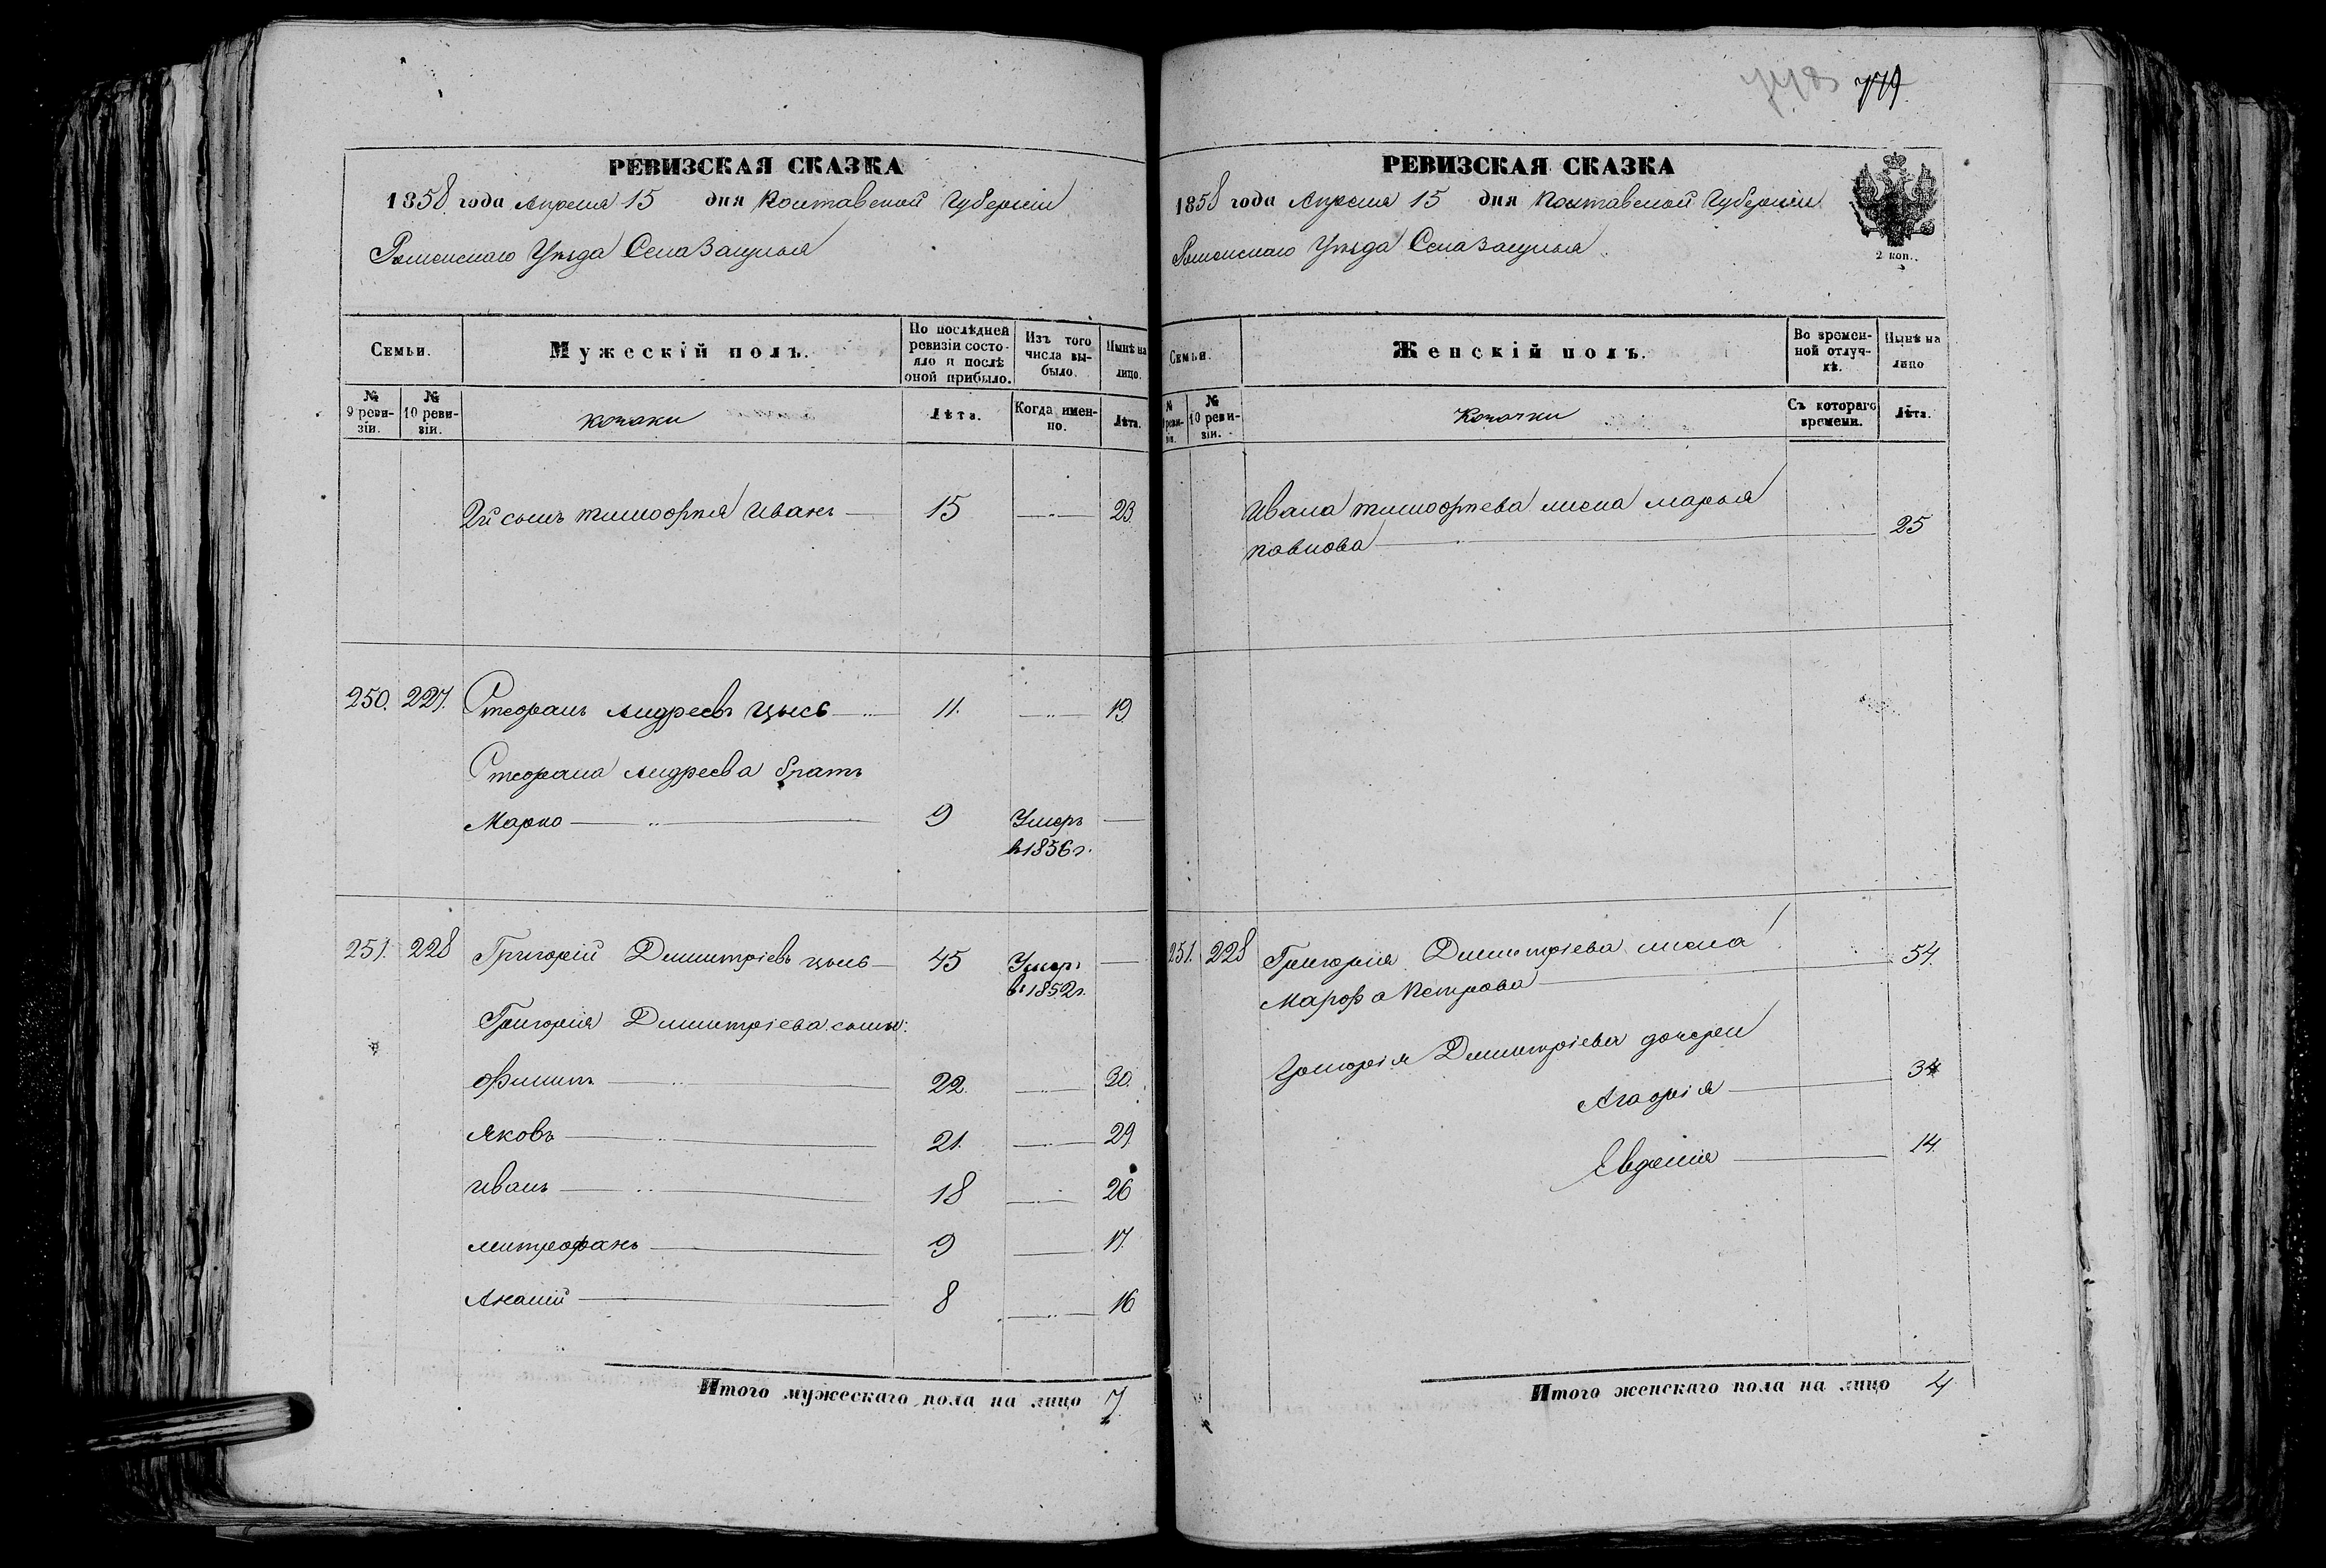 779
РЕВИЗСКАЯ СКАЗКА
1858 года Апреля 15 дня Полтавской Губернiи
Роменскаго Уѣзда Села Засулья
Семьи.
Мужескiй полъ.
По послѣдней ревизiи состояло и послѣ оной прибыло.
Изъ того числа выбыло.
Нынѣ на лицо.
№ 9 ревизiи.
№ 10 ревизiи.
козаки
Лѣта.
Когда именно.
Лѣта.
2й сынъ тимофѣя Иванъ 15 23.
250. 227. Стефанъ Андреевъ Цысь 11. 19
Стефана Андреева братъ
Марко 9 Умеръ
въ 1856 г.
251. 228 Григорiй Димитрiевъ цысь 45 Умеръ
въ 1852 г.
Григорiя Димитрiева сыны:
Филипъ 22 30.
Яковъ 21. 29.
Иванъ 18 26
митрофанъ 9 17.
Ананiй 8 16
Итого мужескаго пола на лицо 7.
РЕВИЗСКАЯ СКАЗКА
1858 года Апреля 15 дня Полтавской Губернiи
Роменскаго Уѣзда Села Засулья
2 коп.
Семьи.
Женскiй полъ.
Во временной отлучкѣ.
Нынѣ на лицо
№ 9 ревизiи.
№ 10 ревизiи.
Козачки
Съ котораго времени.
Лѣта.
Ивана тимофѣева жена марья
павлова 25
251. 228 Григорiя Димитрiева жена
Марфа Петрова 54.
Григорiя Димитрiева дочери
Агафiя 34
Евдокiя 14.
Итого женскаго пола на лицо 4